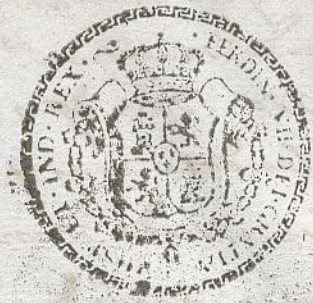 FERDIN · VII · DEI · GRATIA
HISP · ET IND · REX ·